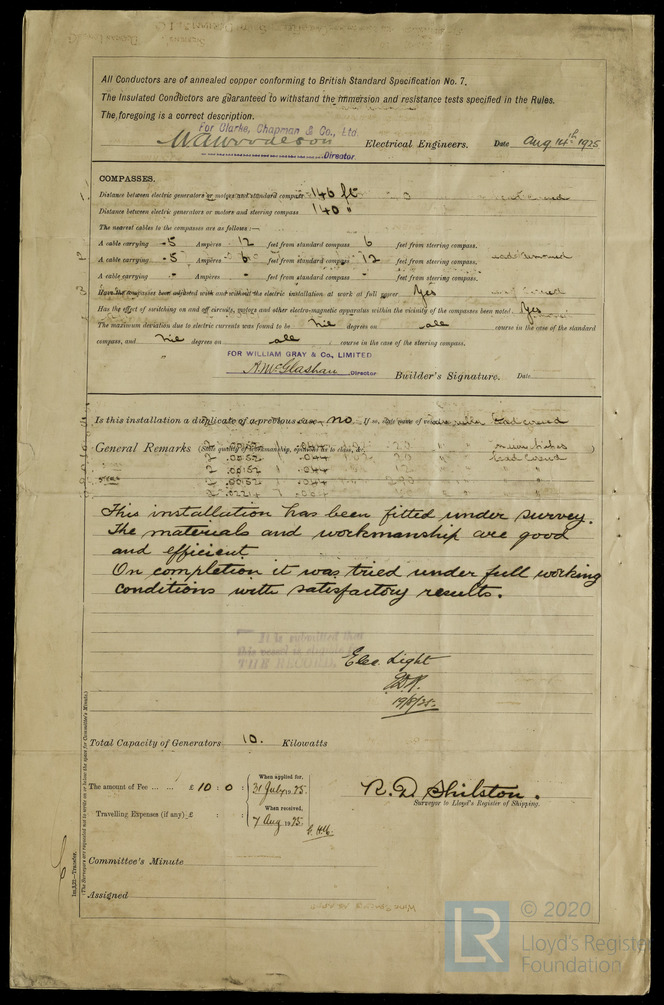 All Conductors are of annealed copper conforming to British Standard Specification No. 7.
The Insulated Conductors are guaranteed to withstand the immersion and resistance tests specified in the Rules.
The foregoing is a correct description.
For Clarke, Chapman & Co., Ltd.
WAWoodeson Electrical Engineers. Date Aug 14th 1925
Director
COMPASSES.
Distance between electric generators or motors and standard compass 146 ft
Distance between electric generators or motors and steering compass 140 "
The nearest cables to the compasses are as follows:—
A cable carrying .5 Ampères 12 feet from standard compass 6 feet from steering compass.
A cable carrying .5 Ampères 6 feet from standard compass 12 feet from steering compass.
A cable carrying - Ampères - feet from standard compass - feet from steering compass.
Have the compasses been adjusted with and without the electric installation at work at full power Yes
Has the effect of switching on and off circuits, motors and other electro-magnetic apparatus within the vicinity of the compasses been noted. Yes
The maximum deviation due to electric currents was found to be Nil degrees on all course in the case of the standard
compass, and Nil degrees on all course in the case of the steering compass.
FOR WILLIAM GRAY & Co., LIMITED
A. McGlashan Director Builder's Signature. Date
Is this installation a duplicate of a previous case no If so, state name of vessel
General Remarks (State quality of workmanship, opinions as to class, &c.)
This installation has been fitted under survey.
The materials and workmanship are good
and efficient
On completion it was tried under full working
conditions with satisfactory results.
It is submitted that
this vessel is eligible for
THE RECORD.
Elec. Light
Total Capacity of Generators 10. Kilowatts
The amount of Fee ... ... £ 10 : 0 : When applied for, 31 July 1925.
Travelling Expenses (if any) £ : : When received, 7 Aug 1925.
R. D. Shilston.
Surveyor to Lloyd's Register of Shipping.
Committee's Minute
Assigned
(The Surveyors are requested not to write on or below the space for Committee's Minute.)
© 2020
LR
Lloyd's Register
Foundation